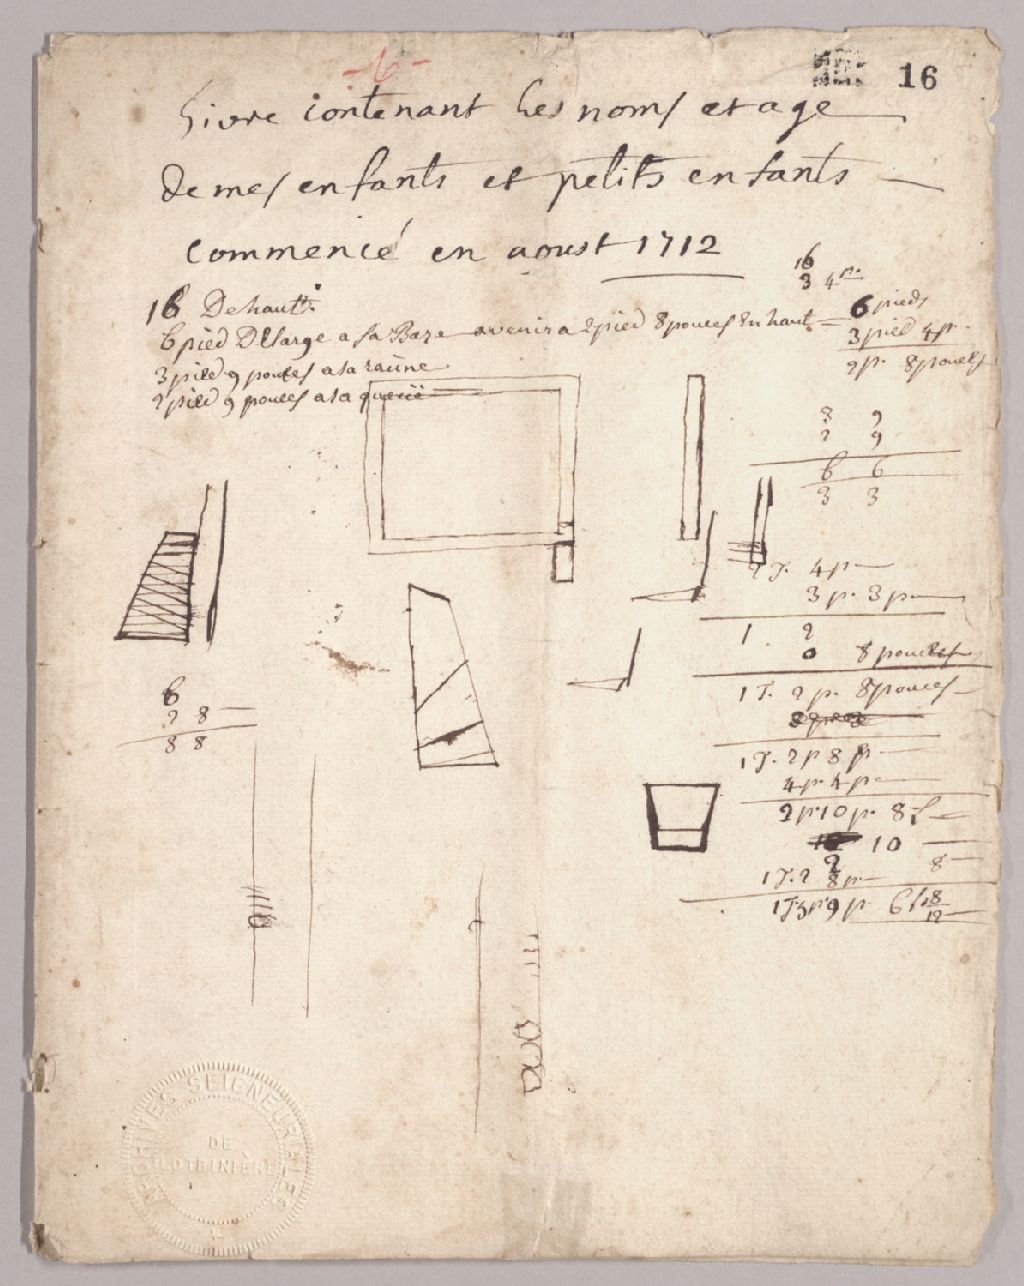 -6-
16
Livre contenant Les noms et age
De mes enfants et petits enfants
commencé en aoust 1712
16
3 4 p.
16 De haut.
6 pied De large a sa Baze avenir a 2 pied 8 pouces En haut
6 pieds
3 pied 4 p.
2 p. 8 pouces
3 pied 9 pouces a la racine
2 pied 9 pouces a la queüe
3 9
2 9
6 6
3 3
2 T. 4 p
3 p. 3 p
1 2
0 8 pouces
1 T. 2 p. 8 pouces
1 T. 2 p 8 p
4 p. 4 p
2 p. 10 p. 8 l
10
2 8
1 T. 2 8 p
1 T 3 p. 9 p 6 l. 8
12
6
2 8
8 8
ARCHIVES SEIGNEURIALES
DE
LOTBINIÈRE